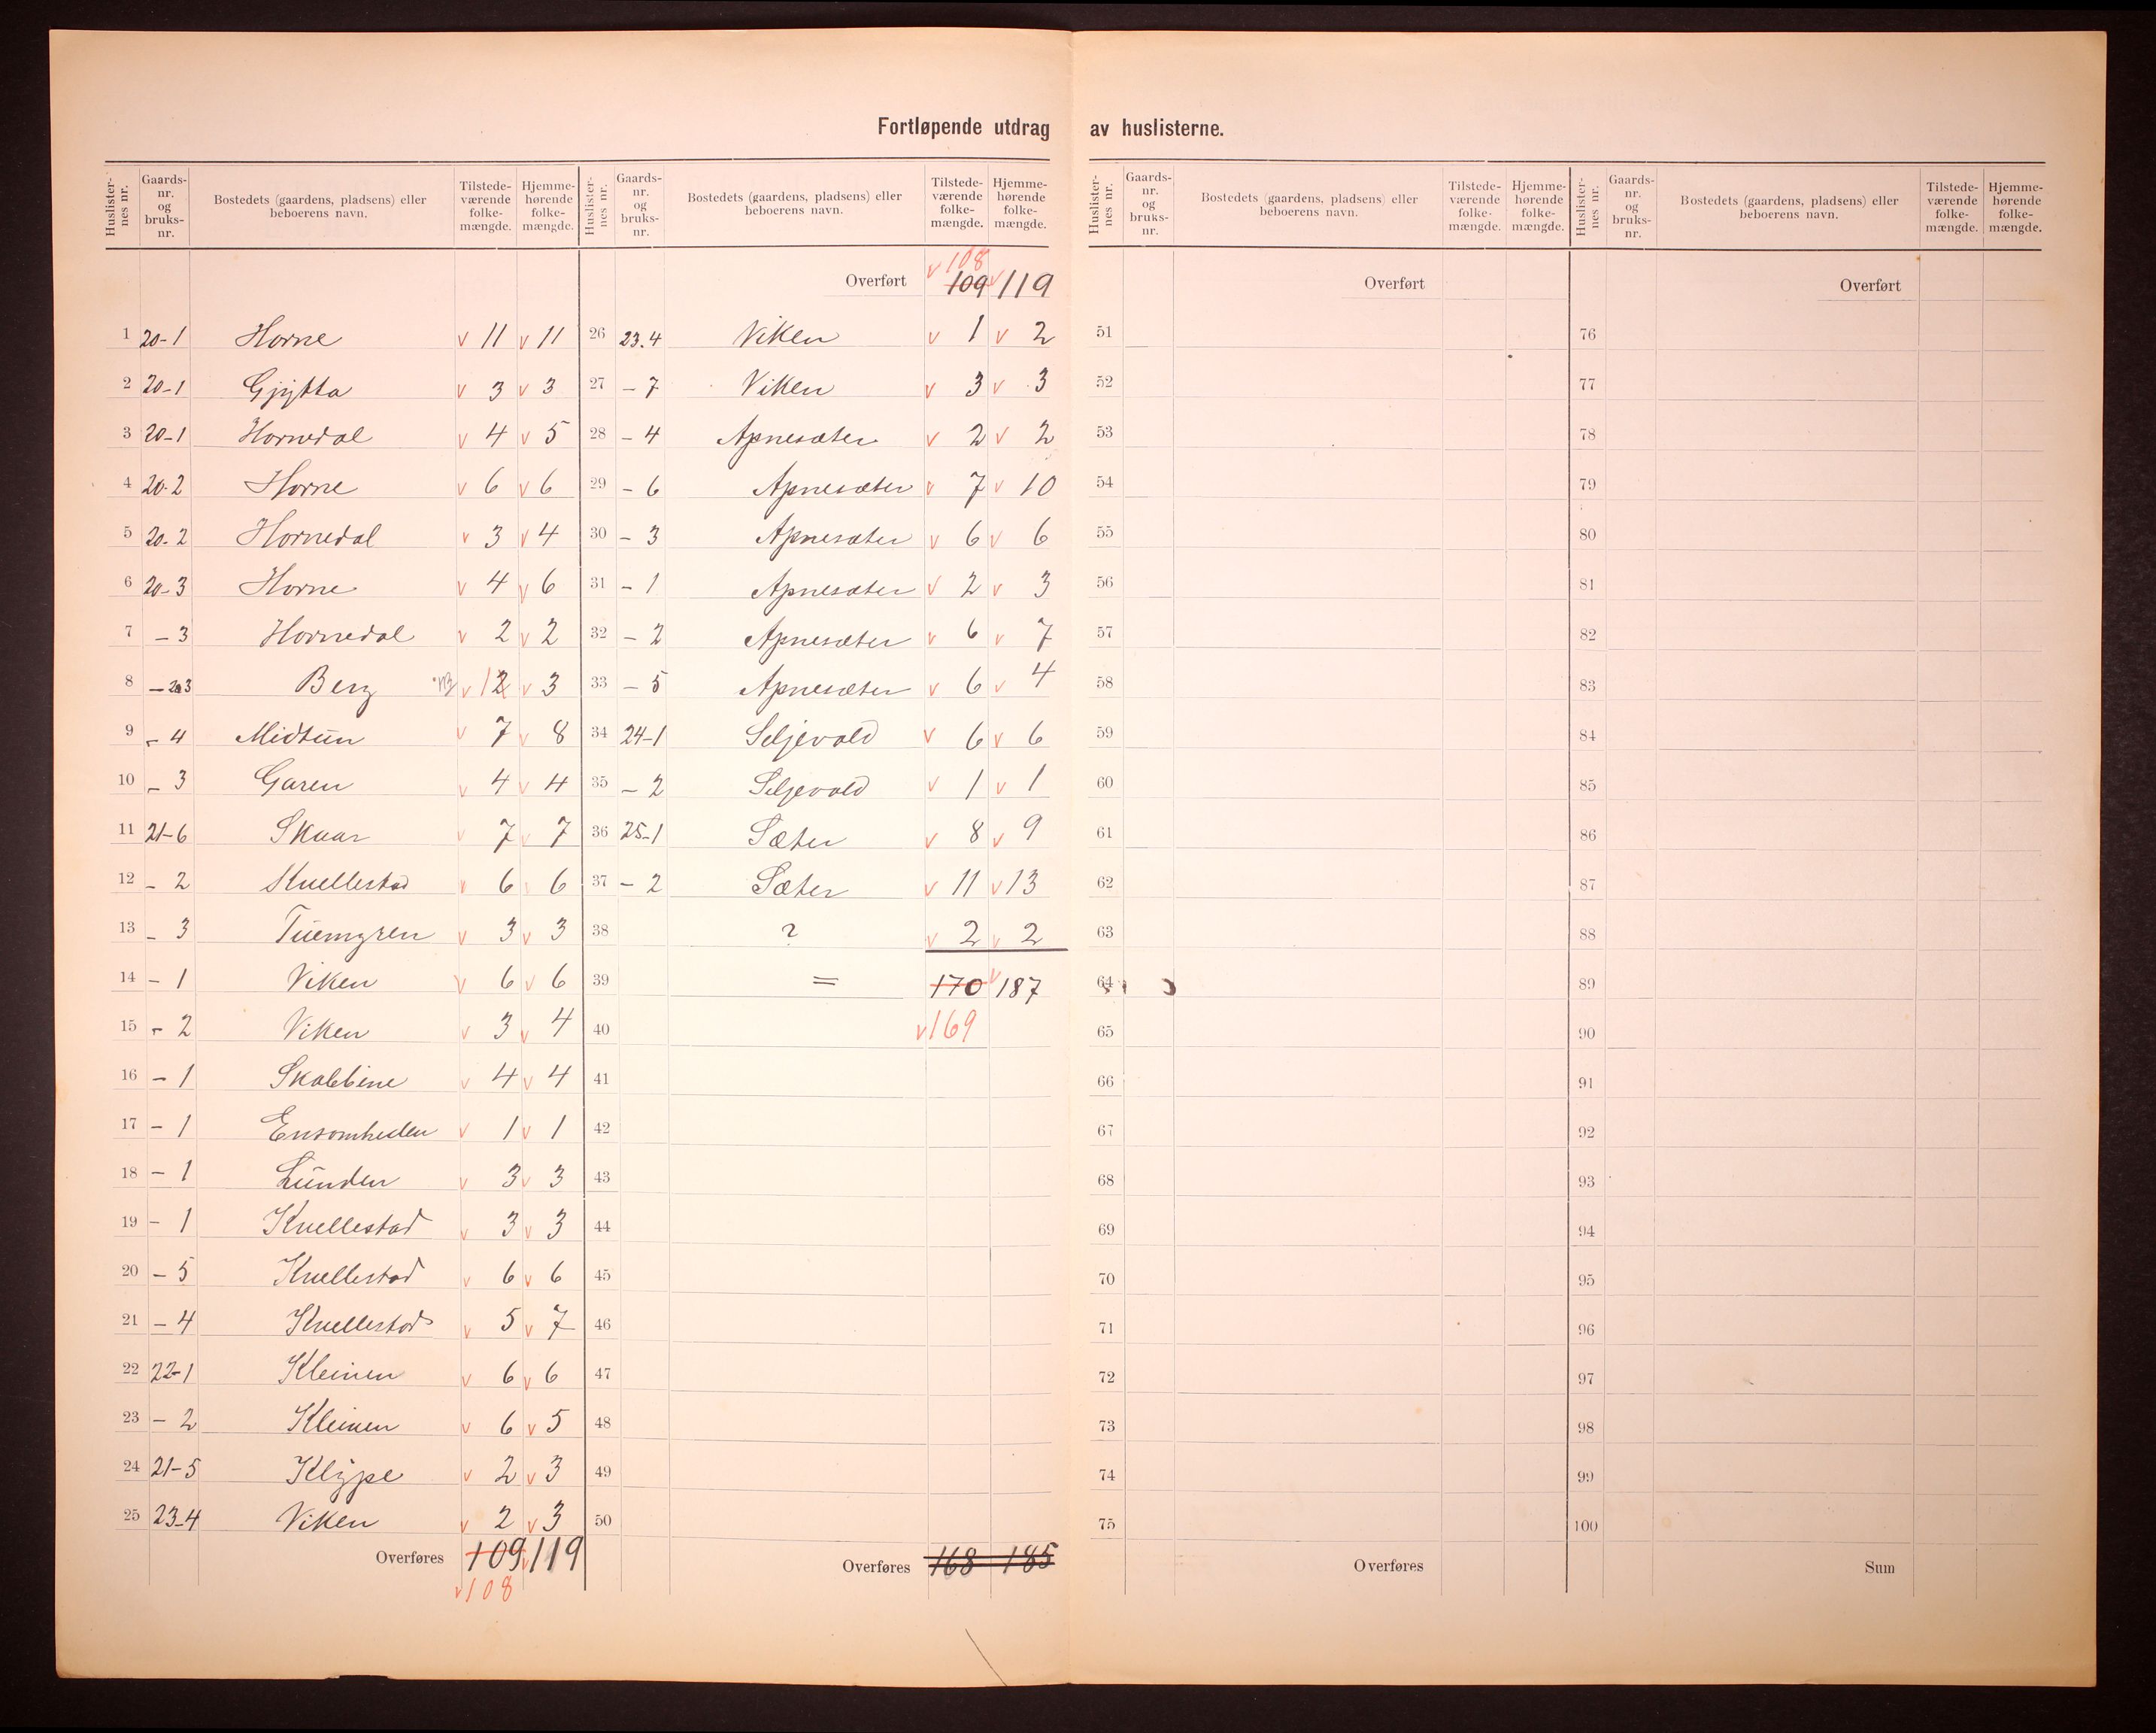 Fortløpende utdrag av huslisterne.
Huslister-nes nr. Gaards-nr. og bruks-nr. Bostedets (gaardens, pladsens) eller beboerens navn. Tilstede-værende folke-mængde. Hjemme-hørende folke-mængde.
1 20-1 Horne v 11 v 11
2 20-1 Gjytta v 3 v 3
3 20-1 Hornedal v 4 v 5
4 20-2 Horne v 6 v 6
5 20-2 Hornedal v 3 v 4
6 20-3 Horne v 4 v 6
7 - 3 Hornedal v 2 v 2
8 - 3 Berg v 1 2 v 3
9 - 4 Midtun v 7 v 8
10 - 3 Garen v 4 v 4
11 21-6 Skaar v 7 v 7
12 - 2 Knellestad v 6 6
13 - 3 Tuemyren v 3 v 3
14 - 1 Viken v 6 v 6
15 - 2 Viken v 3 v 4
16 - 1 Skabbine v 4 v 4
17 - 1 Ensomheden v 1 v 1
18 - 1 Lunden v 3 v 3
19 - 1 Knellestad v 3 v 3
20 - 5 Knellestad v 6 v 6
21 - 4 Knellestad v 5 v 7
22 22-1 Kleinen v 6 v 6
23 - 2 Kleinen v 6 v 5
24 21-5 Klype v 2 v 3
25 23-4 Viken v 2 v 3
Overføres 109 v 119
v 108
Huslister-nes nr. Gaards-nr. og bruks-nr. Bostedets (gaardens, pladsens) eller beboerens navn. Tilstede-værende folke-mængde. Hjemme-hørende folke-mængde.
v 108
Overført 109 v 119
26 23.4 Viken v 1 v 2
27 - 7 Viken v 3 v 3
28 - 4 Apnesæter v 2 v 2
29 - 6 Apnesæter v 7 v 10
30 - 3 Apnesæter v 6 v 6
31 - 1 Apnesæter v 2 v 3
32 - 2 Apnesæter v 6 v 7
33 - 5 Apnesæter v 6 v 4
34 24-1 Seljevold v 6 v 6
35 - 2 Seljevold v 1 v 1
36 25-1 Sæter v 8 v 9
37 - 2 Sæter v 11 v 13
38 ? v 2 v 2
39 = 170 v 187
40 v 169
41
42
43
44
45
46
47
48
49
50
Overføres 168 185
Huslister-nes nr. Gaards-nr. og bruks-nr. Bostedets (gaardens, pladsens) eller beboerens navn. Tilstede-værende folke-mængde. Hjemme-hørende folke-mængde.
Overført
51
52
53
54
55
56
57
58
59
60
61
62
63
64
65
66
67
68
69
70
71
72
73
74
75
Overføres
Huslister-nes nr. Gaards-nr. og bruks-nr. Bostedets (gaardens, pladsens) eller beboerens navn. Tilstede-værende folke-mængde. Hjemme-hørende folke-mængde.
Overført
76
77
78
79
80
81
82
83
84
85
86
87
88
89
90
91
92
93
94
95
96
97
98
99
100
Sum